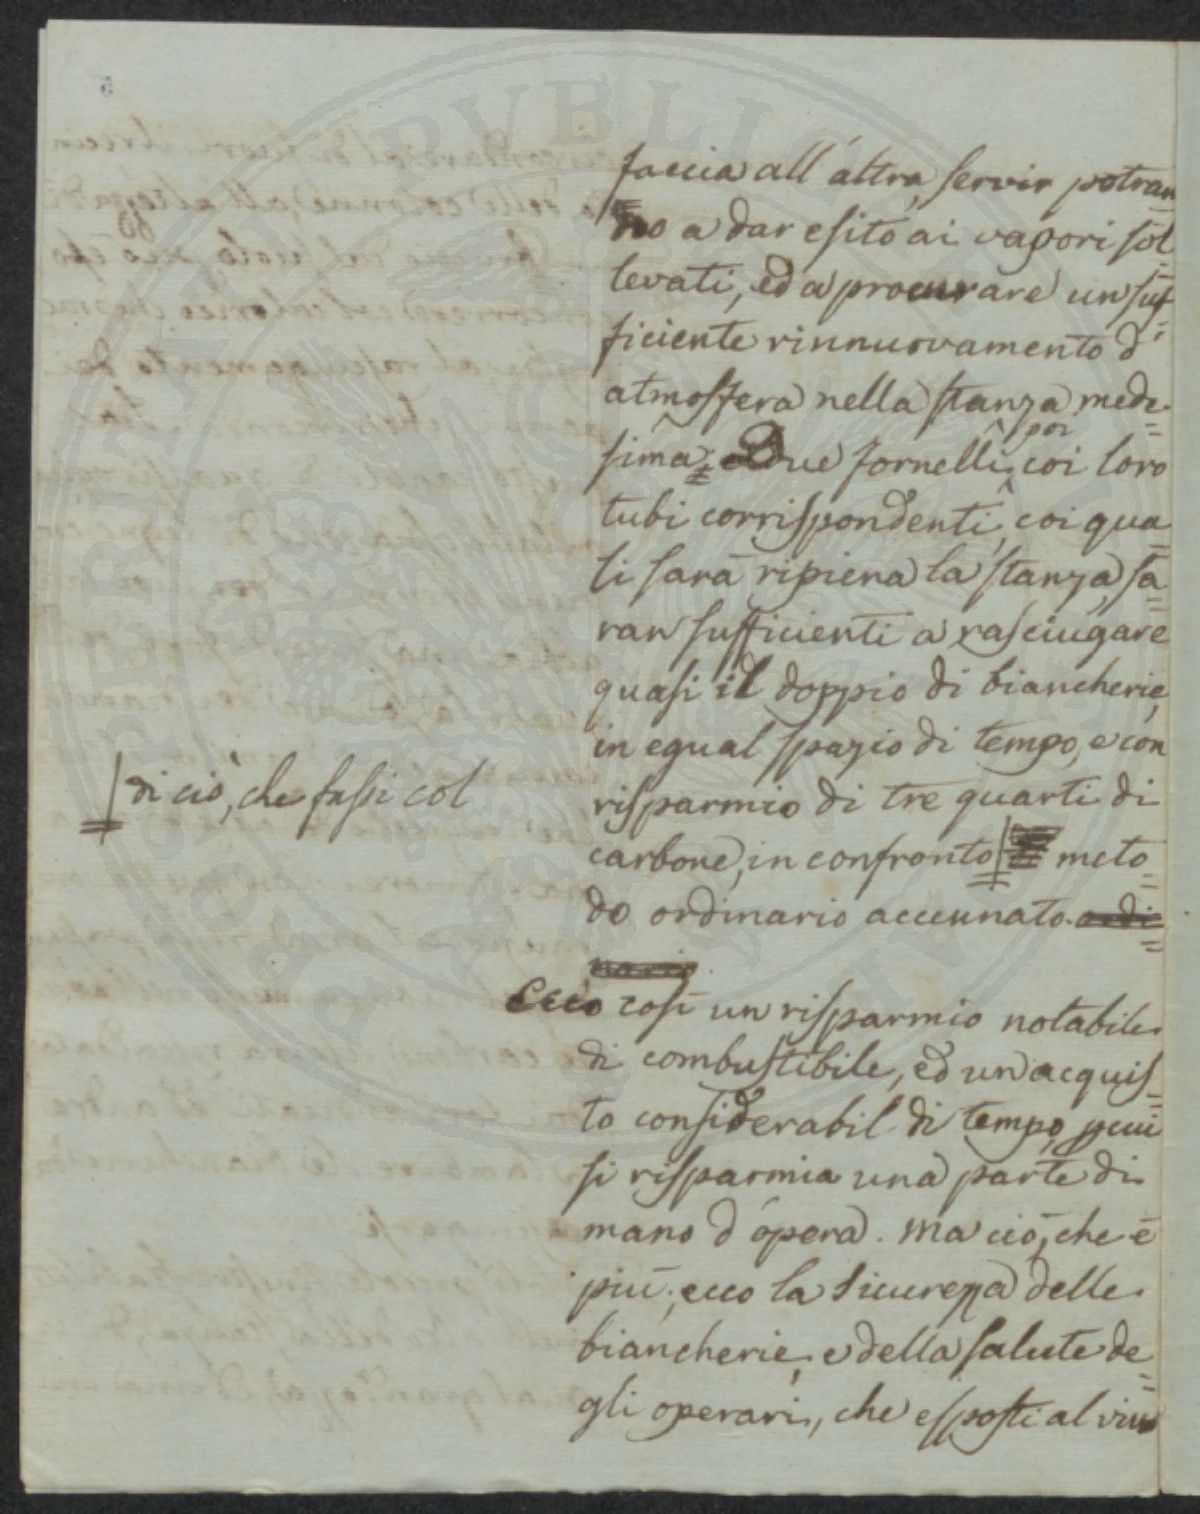 faccia all'altra, servir potran=
no a dar esito ai vapori sol=
levati, ed a procurare un suf=
ficiente rinnuovamento d'
atmosfera nella stanza mede=
sima. Due fornelli poi coi loro
tubi corrispondenti, coi qua=
li sarà ripiena la stanza, sa=
ran sufficienti a rasciugare
quasi il doppio di biancherie,
in egual spazio di tempo, e con
risparmio di tre quarti di
di ciò, che fassi col
carbone, in confronto meto=
do ordinario accennato. ordi=
nario.
Ecco così un risparmio notabile
di combustibile, ed un acquis=
to considerabil di tempo, per cui
si risparmia una parte di
mano d'opera. Ma ciò, che è
più, ecco la sicurezza delle
biancherie, e della salute de=
gli operari, che esposti al vivo
PROSPERITATI PUBLICAE